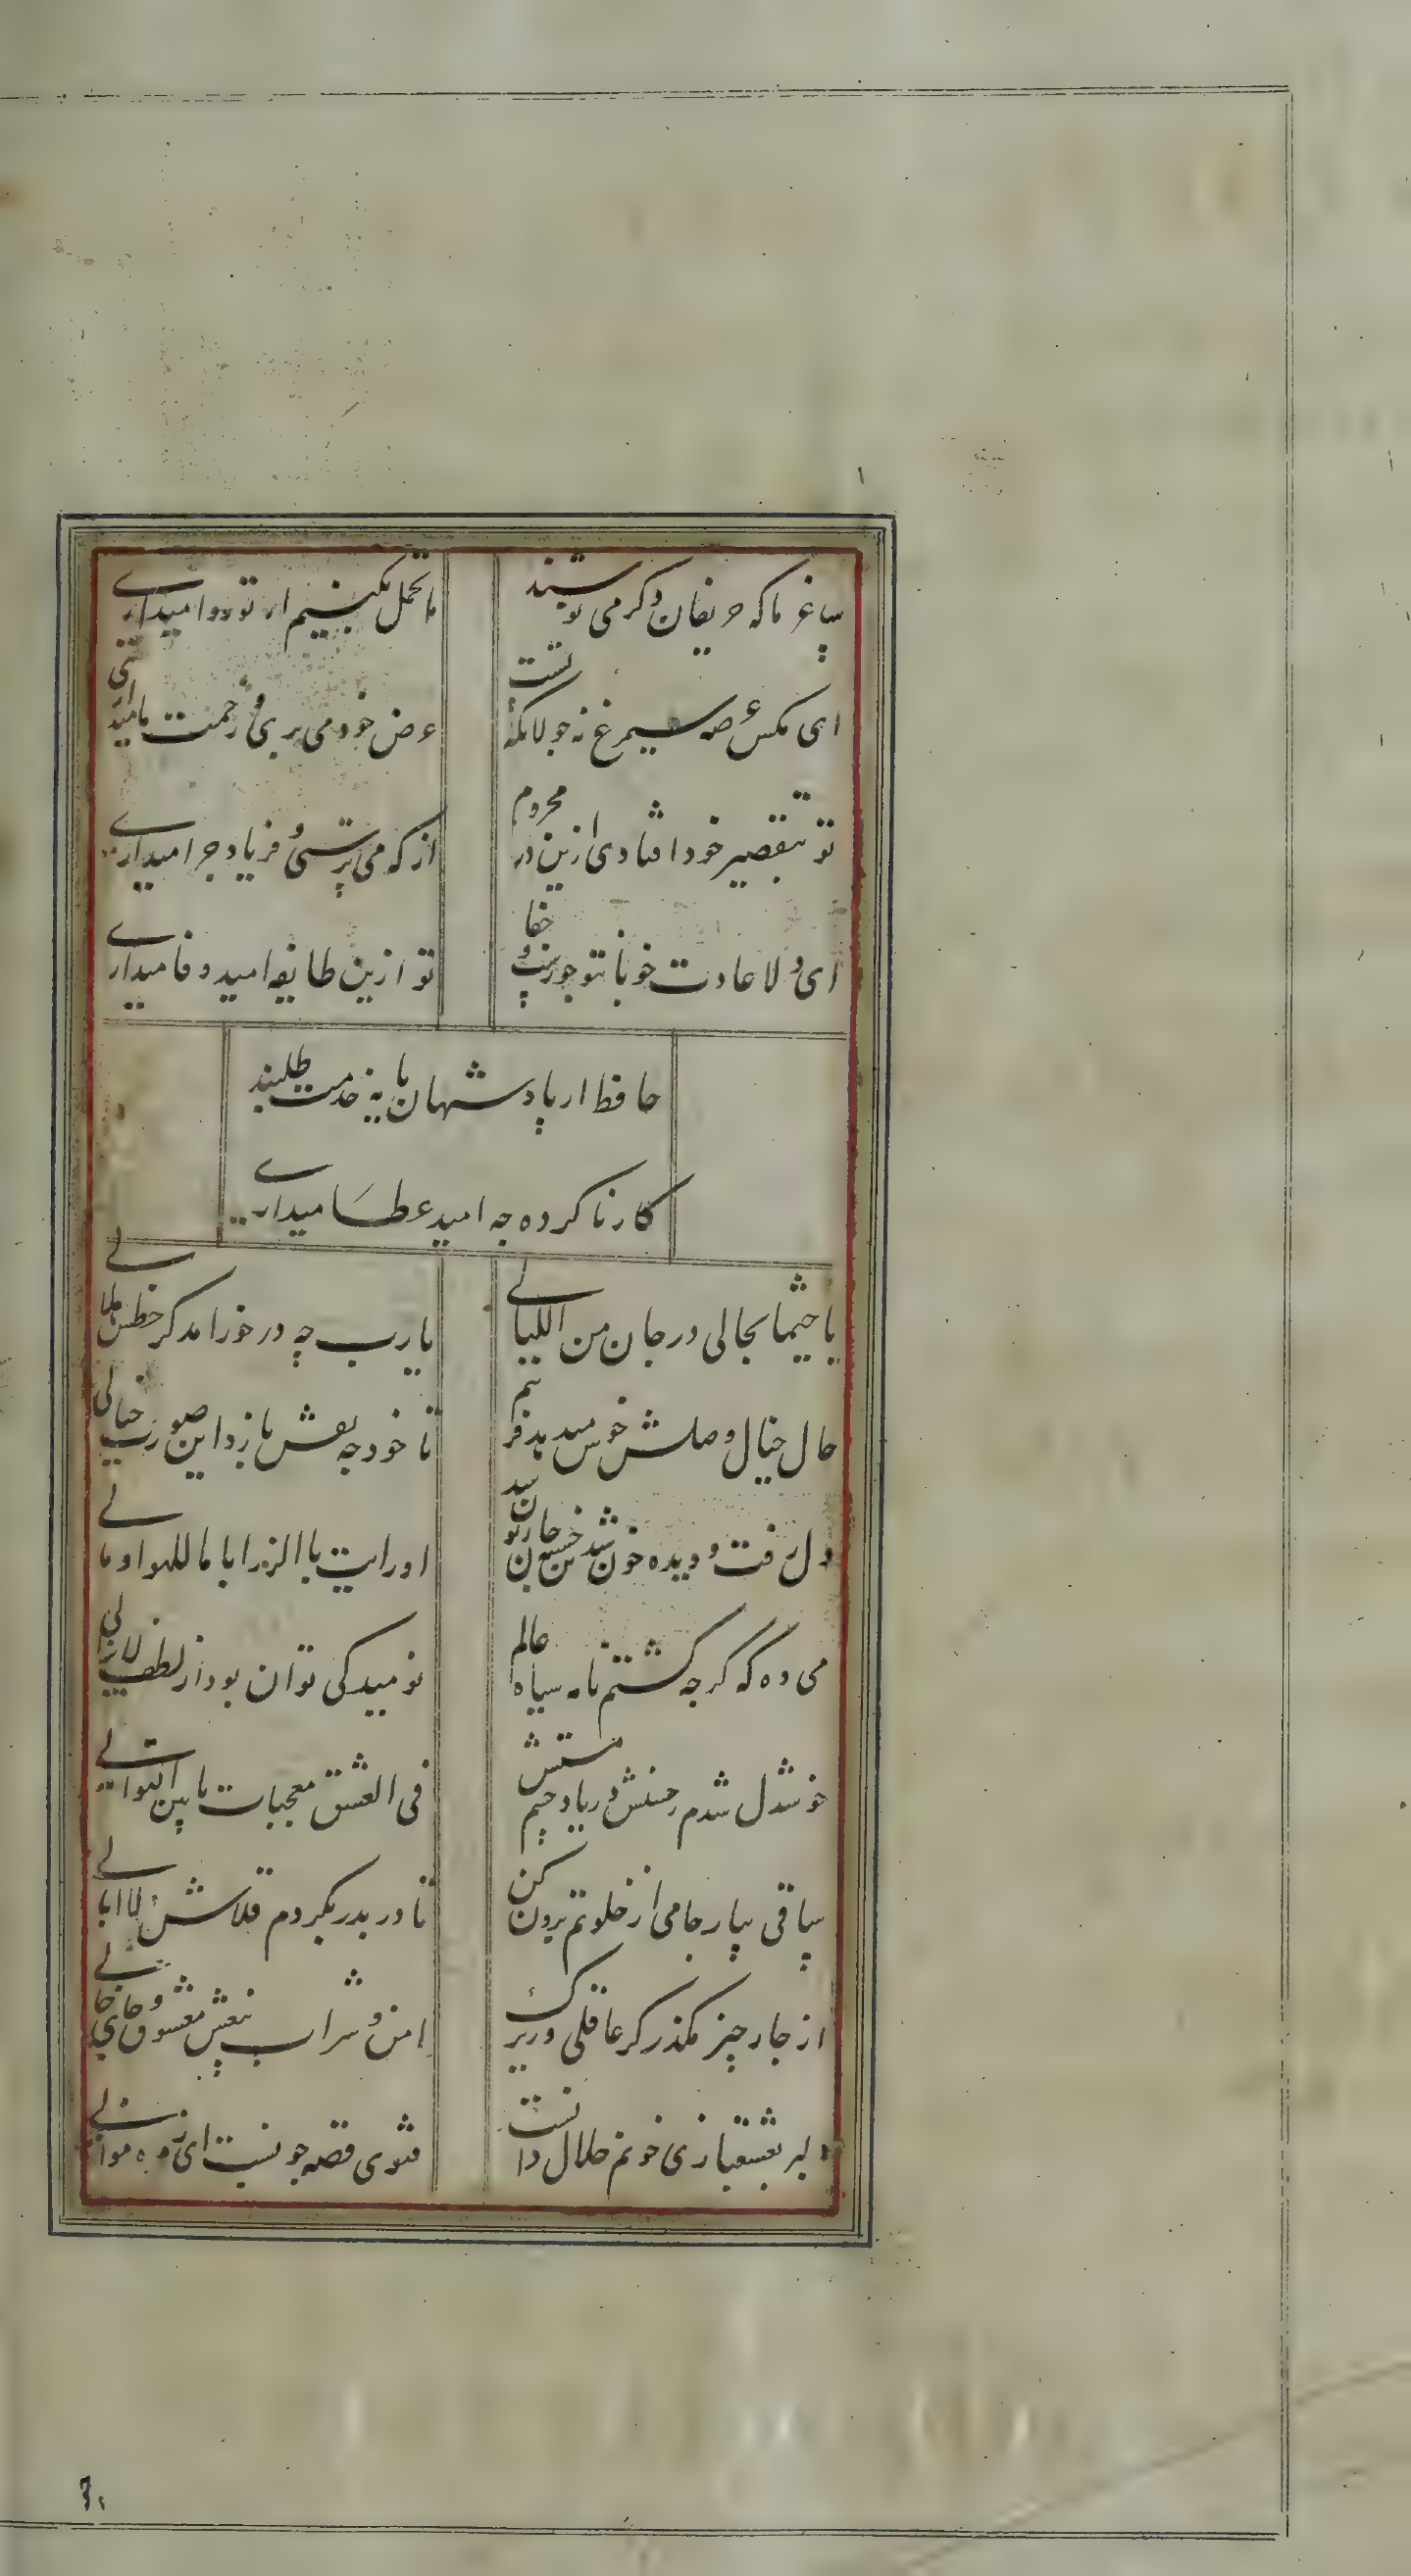 ساغر ما که حریفان دکر می نوشند
ما تحمل نکنیم ار تو روا میداری
ای مکس عرصه سیمرغ نه جولانکه تست
عرض خود می بری و زحمت ما میداری
تو بتقصیر خود افتادی ازین در محروم
از که می پرسی و فریاد چرا میداری
ای دلا عادت خوبان بتو جورست و جفا
تو ازین طایفه امید وفا میداری
حافظ ار پادشهان پایه بخدمت طلبند
کار ناکرده چه امید عطا میداری
یا مبسما بحالی درجا من اللیالی
یارب چه درخور امد کرد خطش هلالی
حال خیال وصلش خوش میدهد فریبم
تا خود چه نقش بازد این صورت خیالی
دل رفت و دیده خون شد تن خست و جان
می ده که کرچه کشتم نامه سیاه عالم
نومید کی توان بود از لطف لایزالی
فی العشق معجبات
ساقی بیار جامی از خلوتم برون کن
تا در بدر بکردم قلاش لاابالی
از چار چیز مکذر کر عاقلی و زیرک
امن و شراب بیغش معشوق و جای خالی
دلبر بعشقبازی خونم حلال دانست
فتوی قصه چونست ای زمره موالی